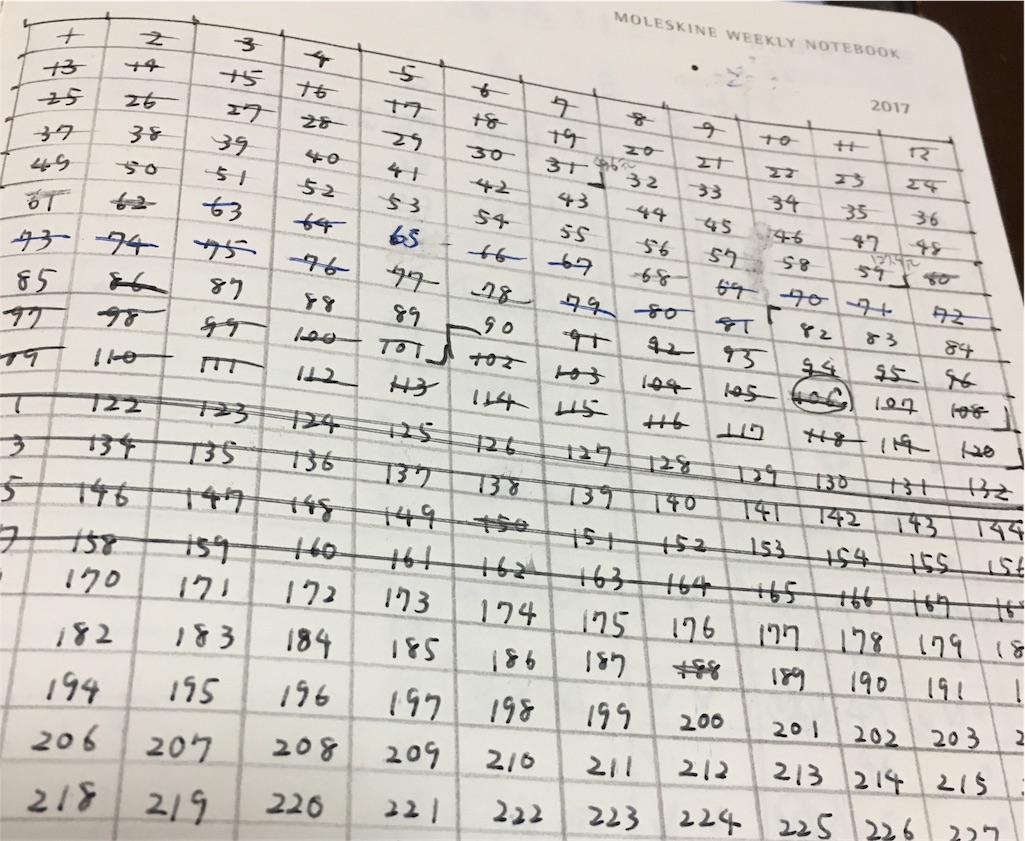 MOLESKINE WEEKLY NOTEBOOK
2017
1 2 3 4 5 6 7 8 9 10 11 12
13 14 15 16 17 18 19 20 21 22 23 24
25 26 27 28 29 30 31 32 33 34 35 36
37 38 39 40 41 42 43 44 45 46 47 48
49 50 51 52 53 54 55 56 57 58 59 60
61 62 63 64 65 66 67 68 69 70 71 72
73 74 75 76 77 78 79 80 81 82 83 84
85 86 87 88 89 90 91 92 93 94 95 96
97 98 99 100 101 102 103 104 105 106 107 108
09 110 111 112 113 114 115 116 117 118 119 120
1 122 123 124 125 126 127 128 129 130 131 132
3 134 135 136 137 138 139 140 141 142 143 144
5 146 147 148 149 150 151 152 153 154 155 156
7 158 159 160 161 162 163 164 165 166 167 168
170 171 172 173 174 175 176 177 178 179 18
182 183 184 185 186 187 188 189 190 191 1
194 195 196 197 198 199 200 201 202 203 2
206 207 208 209 210 211 212 213 214 215
218 219 220 221 222 223 224 225 226 227